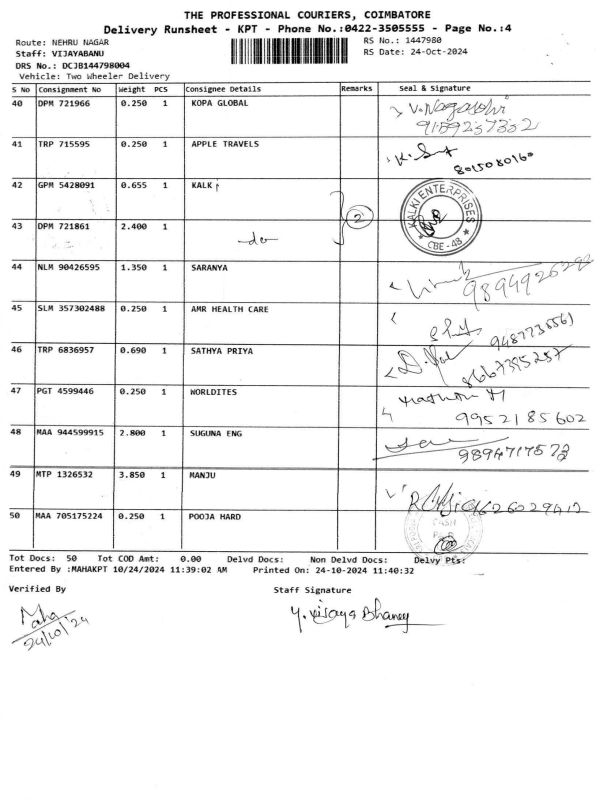 THE PROFESSIONAL COURIERS, COIMBATORE
Delivery Runsheet - KPT - Phone No.:0422-3505555 - Page No.:4
Route: NEHRU NAGAR RS No.: 1447980
Staff: VIJAYABANU RS Date: 24-Oct-2024
DRS No.: DCJB144798004
Vehicle: Two Wheeler Delivery
S No Consignment No Weight PCS Consignee Details Remarks Seal & Signature
40 DPM 721966 0.250 1 KOPA GLOBAL
9159237332
41 TRP 715595 0.250 1 APPLE TRAVELS
8015080160
42 GPM 5428091 0.655 1 KALK
2
KALKI ENTERPRISES
CBE - 43
43 DPM 721861 2.400 1
do
44 NLM 90426595 1.350 1 SARANYA
45 SLM 357302488 0.250 1 AMR HEALTH CARE
46 TRP 6836957 0.690 1 SATHYA PRIYA
8667395257
47 PGT 4599446 0.250 1 WORLDITES
9952185602
48 MAA 944599915 2.800 1 SUGUNA ENG
9894717573
49 MTP 1326532 3.850 1 MANJU
9626029412
50 MAA 705175224 0.250 1 POOJA HARD
Tot Docs: 50 Tot COD Amt: 0.00 Delvd Docs: Non Delvd Docs: Delvy Pts:
Entered By :MAHAKPT 10/24/2024 11:39:02 AM Printed On: 24-10-2024 11:40:32
Verified By Staff Signature
Maha
24/10/24
Y. Vijaya Bhaney